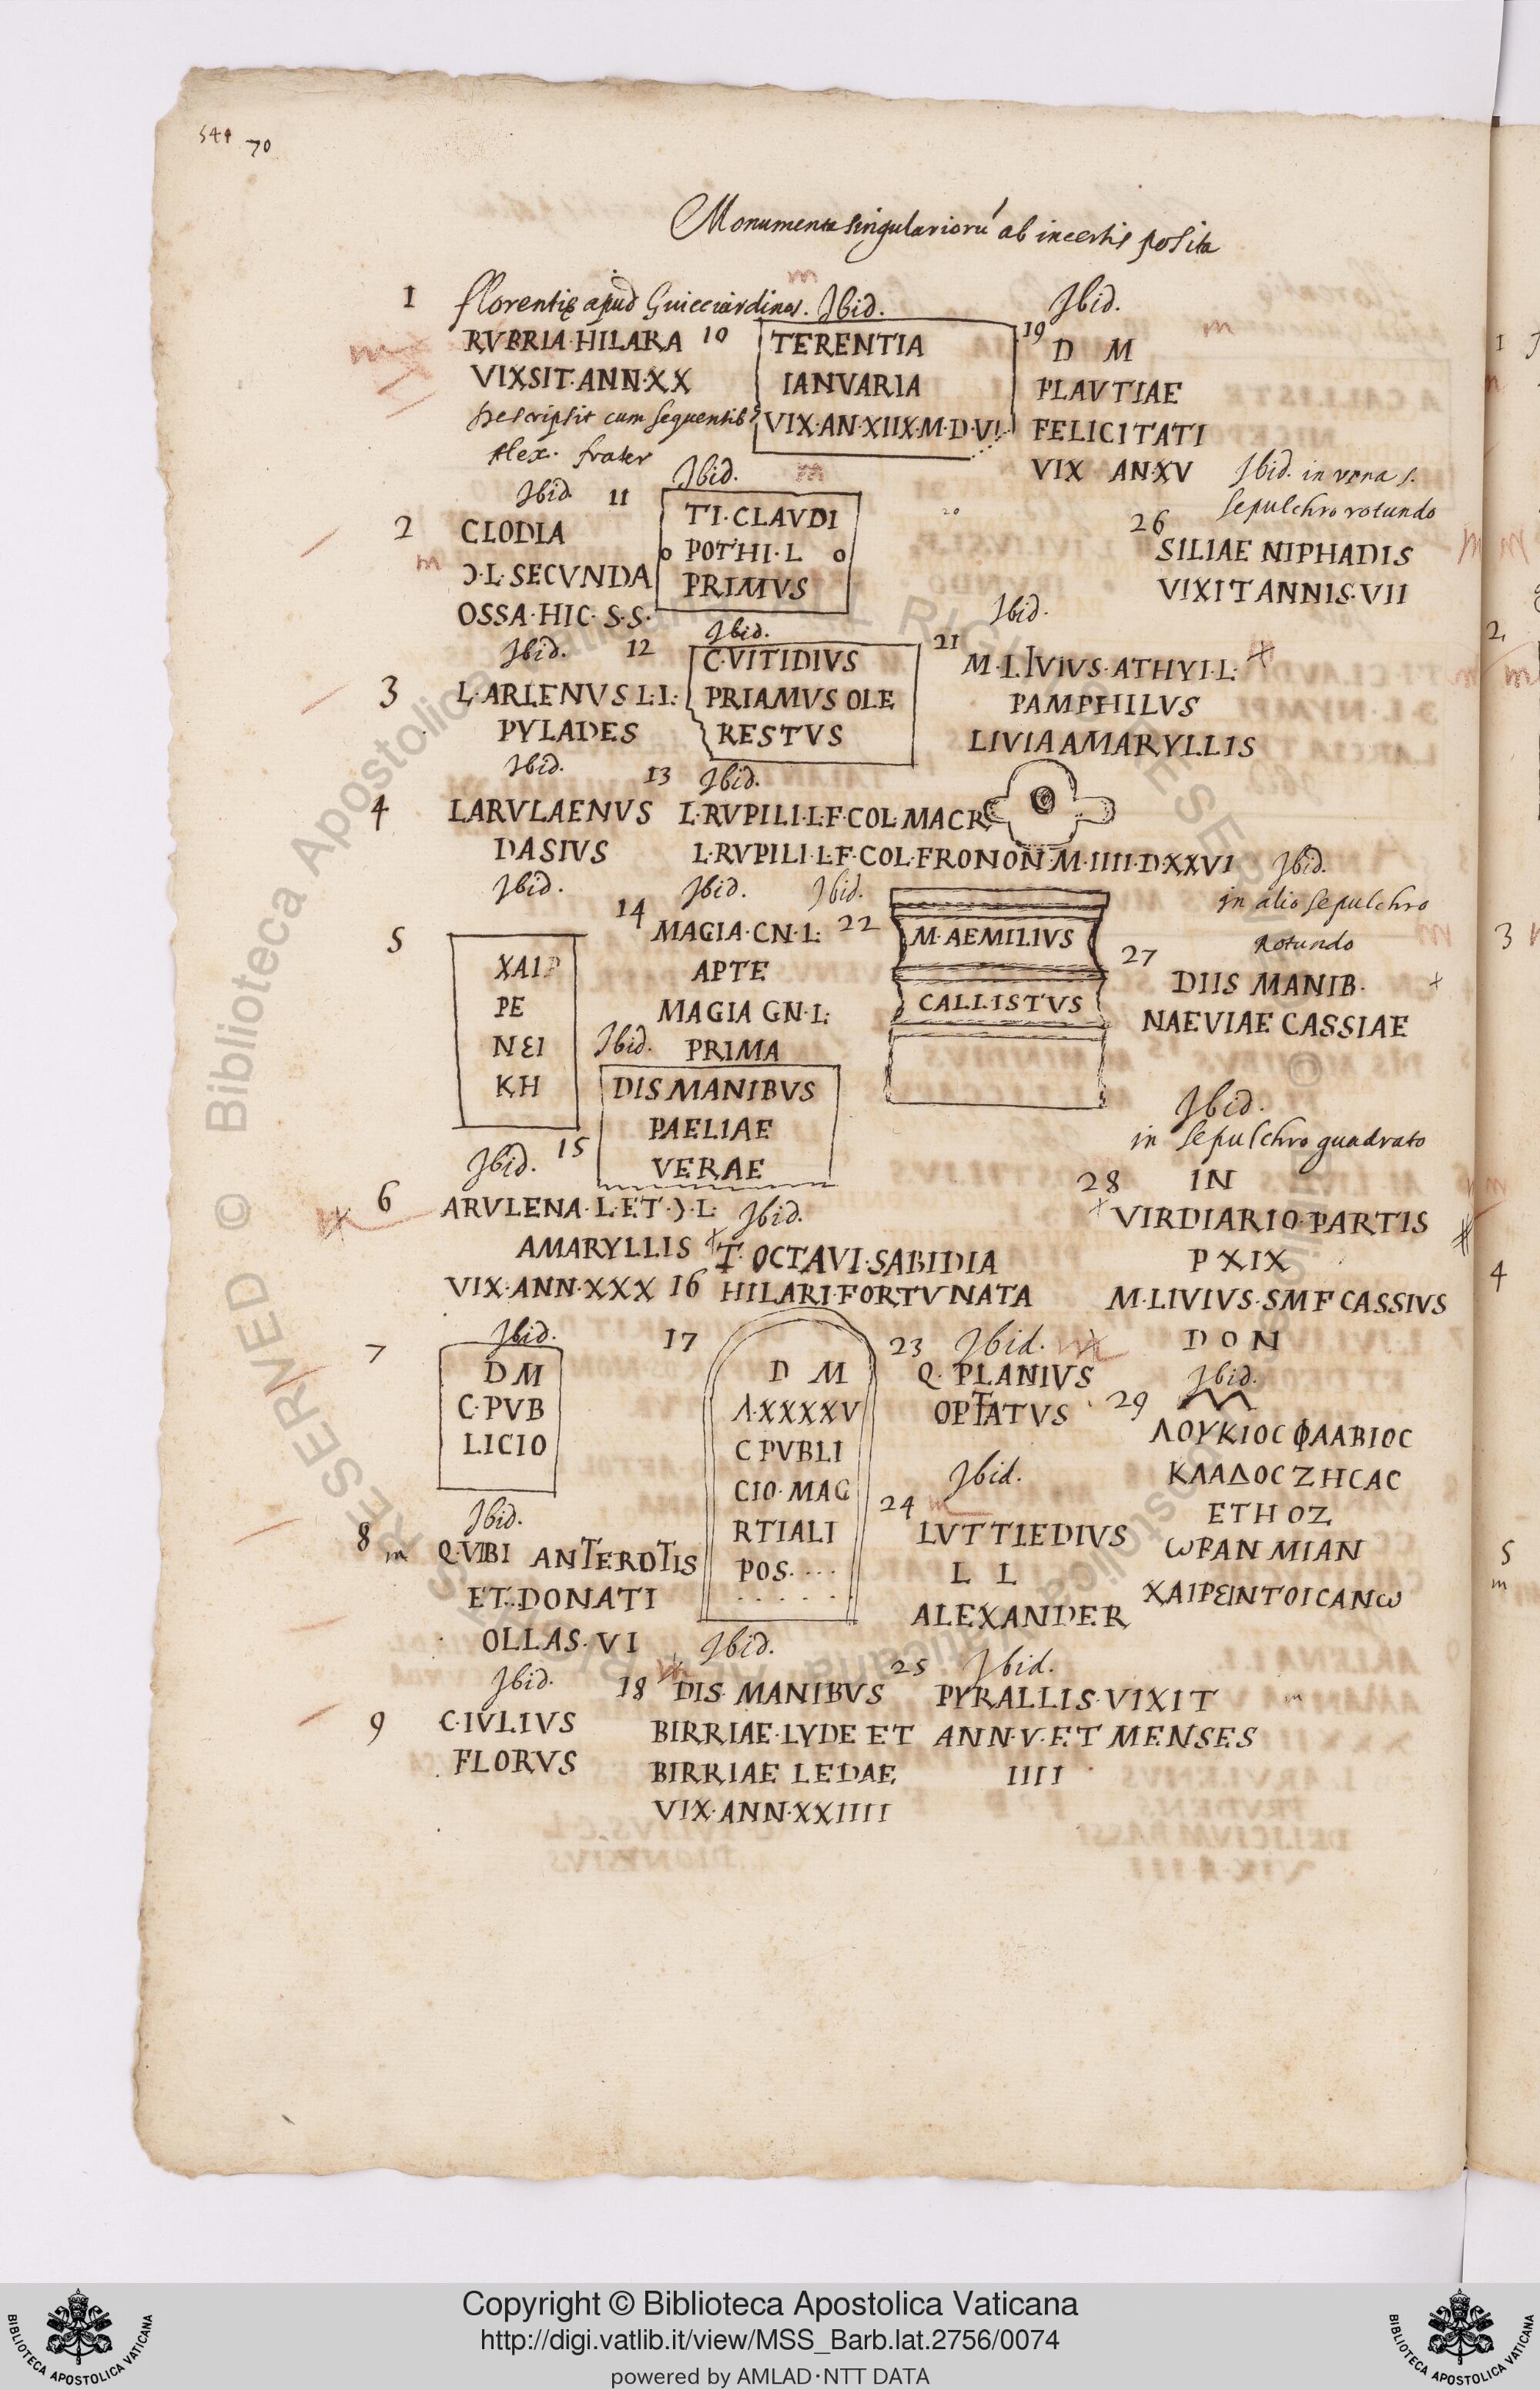 544 70
Monumenta singularioru ab incertis posita
1 florentię apud Guicciardinos.
RVBRIA·HILARA
VIXSIT·ANN·XX
Descripsit cum sequentib9
Alex. frater
Ibid.
2 CLODIA
Ɔ·L·SECVNDA
OSSA·HIC·S·S·
Ibid.
3 L·ARLENVS L·L·
PYLADES
Ibid.
4 LARVLAENVS
DASIVS
Ibid.
5 ΧΑΙΡ
ΡΕ
ΝЄΙ
ΚΗ
Ibid.
6 ARVLENA·L·ET·Ɔ·L·
AMARYLLIS
VIX·ANN·XXX
Ibid.
7 D M
C·PVB
LICIO
Ibid.
8 Q·VIBI ANTEROTIS
ET·DONATI
OLLAS·VI
Ibid.
9 C·IVLIVS
FLORVS
Ibid.
10 TERENTIA
IANVARIA
VIX·AN·XIIX·M·D·VI
Ibid.
11 TI·CLAVDI
POTHI·L
PRIMVS
Ibid.
12 C·VITIDIVS
PRIAMVS OLE
RESTVS
13 Ibid.
L·RVPILI·L·F·COL·MACR
L·RVPILI·L·F·COL·FRONON·M·IIII·D·XXVI
Ibid.
14 MAGIA·CN·L·
APTE
MAGIA GN·L·
PRIMA
Ibid.
15 DIS MANIBVS
PAELIAE
VERAE
Ibid.
16 T·OCTAVI·SABIDIA
HILARI·FORTVNATA
17 D M
Λ·XXXXV
C PVBLI
CIO·MAG
RTIALI
POS....
......
Ibid.
18 DIS MANIBVS
BIRRIAE·LYDE ET
BIRRIAE LEDAE
VIX·ANN·XXIIII
Ibid.
19 D M
PLAVTIAE
FELICITATI
VIX AN·XV
20
Ibid.
21 M·LIVIVS·ATHYI·L·
PAMPHILVS
LIVIA AMARYLLIS
Ibid.
22 M·AEMILIVS
CALLISTVS
23 Ibid.
Q·PLANIVS
OPTATVS
Ibid.
24 LVTTIEDIVS
L L
ALEXANDER
25 Ibid.
PYRALLIS·VIXIT
ANN·V·ET MENSES
IIII
Ibid. in vrna s.
sepulchro rotundo
26 SILIAE NIPHADIS
VIXIT ANNIS·VII
Ibid.
in alio sepulchro
Rotundo
27 DIIS MANIB·
NAEVIAE CASSIAE
Ibid.
in sepulchro quadrato
28 IN
VIRDIARIO·PARTIS
P XIX
M·LIVIVS·SMF CASSIVS
D O N
Ibid.
29 ΛΟΥΚΙΟC ΦΛΑΒΙΟC
ΚΛΑΔΟC ΖΗCΑC
ΕΤΗ ΟΖ
ωΡΑΝ ΜΙΑΝ
ΧΑΙΡЄΙΝΤΟΙCΑΝω
Copyright © Biblioteca Apostolica Vaticana
http://digi.vatlib.it/view/MSS_Barb.lat.2756/0074
powered by AMLAD·NTT DATA
BIBLIOTECA APOSTOLICA VATICANA
BIBLIOTECA APOSTOLICA VATICANA